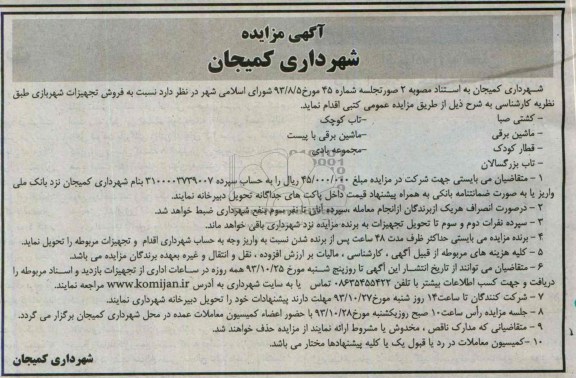 آگهی مزایده
شهرداری کمیجان
شهرداری کمیجان به استناد مصوبه ۲ صورتجلسه شماره ۴۵ مورخ ۹۳/۸/۵ شورای اسلامی شهر در نظر دارد نسبت به فروش تجهیزات شهربازی طبق
نظریه کارشناسی به شرح ذیل از طریق مزایده عمومی کتبی اقدام نماید.
- کشتی صبا
-تاب کوچک
- ماشین برقی
-ماشین برقی با پیست
- قطار کودک
-مجموعه بادی
- تاب بزرگسالان
۱ - متقاضیان می بایستی جهت شرکت در مزایده مبلغ ۴۵/۰۰۰/۰۰۰ ریال را به حساب سپرده ۳۱۰۰۰۰۳۷۳۹۰۰۷ بنام شهرداری کمیجان نزد بانک ملی
واریز یا به صورت ضمانتنامه بانکی به همراه پیشنهاد قیمت داخل پاکت های جداگانه تحویل دبیرخانه نمایند.
۲ - درصورت انصراف هریک ازبرندگان ازانجام معامله ،سپرده آنان تا نفر سوم بنفع شهرداری ضبط خواهد شد.
۳ - سپرده نفرات دوم و سوم تا تحویل تجهیزات به برنده مزایده نزد شهرداری باقی خواهد ماند.
۴ - برنده مزایده می بایستی حداکثر ظرف مدت ۴۸ ساعت پس از برنده شدن نسبت به واریز وجه به حساب شهرداری اقدام و تجهیزات مربوطه را تحویل نماید.
۵ - کلیه هزینه های مربوطه از قبیل آگهی ، کارشناسی ، مالیات بر ارزش افزوده ، نقل و انتقال و غیره بعهده برندگان مزایده می باشد.
۶ - متقاضیان می توانند از تاریخ انتشار این آگهی تا روزپنج شنبه مورخ ۹۳/۱۰/۲۵ همه روزه در ساعات اداری از تجهیزات بازدید و اسناد مربوطه را
دریافت و جهت کسب اطلاعات بیشتر با تلفن ۰۸۶۳۵۴۵۵۴۲۲ تماس یا به سایت شهرداری به آدرس www.komijan.ir مراجعه نمایند.
۷ - شرکت کنندگان تا ساعت۱۴ روز شنبه مورخ۹۳/۱۰/۲۷ مهلت دارند پیشنهادات خود را تحویل دبیرخانه شهرداری نمایند.
۸ - جلسه مزایده رأس ساعت۱۰ صبح روزیکشنبه مورخ۹۳/۱۰/۲۸ با حضور اعضاء کمیسیون معاملات عمده در محل شهرداری کمیجان برگزار می گردد.
۹ - متقاضیانی که مدارک ناقص ، مخدوش یا مشروط ارائه نمایند از مزایده حذف خواهند شد.
۱۰ -کمیسیون معاملات در رد یا قبول یک یا کلیه پیشنهادها مختار می باشد.
شهرداری کمیجان